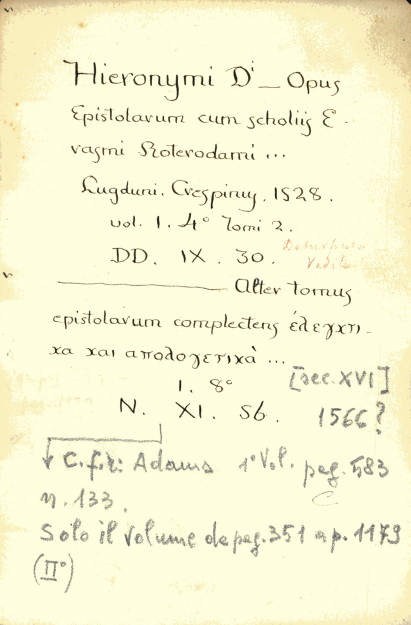 Hieronymi Di — Opus
Epistolarum cum scholiis E-
rasmi Roterodami ...
Lugduni. Crespinus. 1528.
vol. 1. 4° Tomi 2.
DD. IX. 30.
Alter tomus
epistolarum complectens ἐλεγχτι-
χα χαι απολογετιχὰ ...
1. 8° [sec. XVI]
N. XI. 56. 1566?
C.fr: Adams 1° Vol. pag. 583
n. 133.
Solo il volume da pag. 351 a p. 1179
(II°)